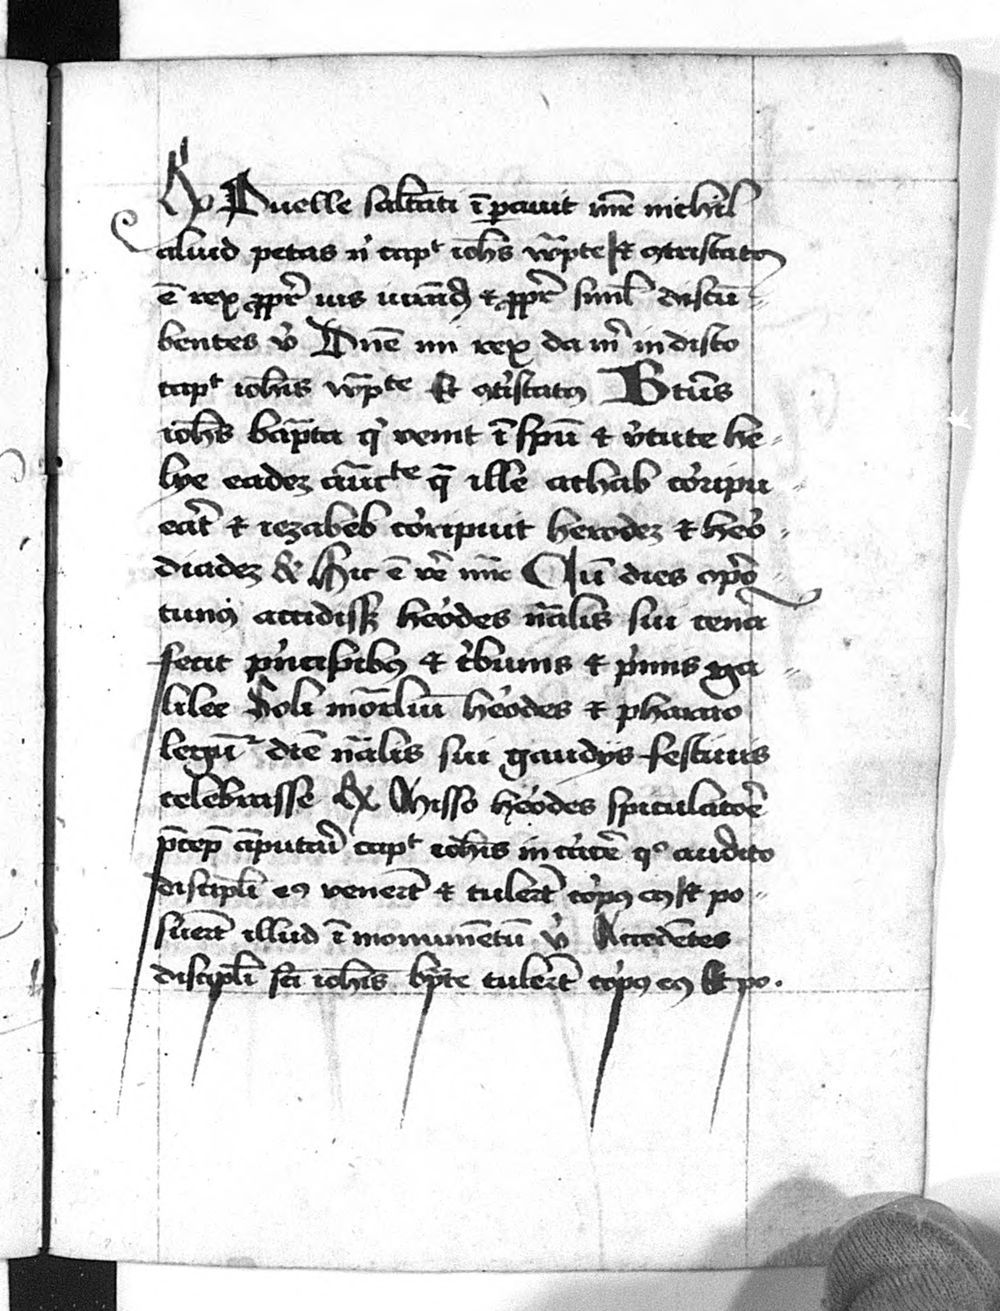 R Puelle saltāti īpauit mr̄ nichil
aliud petas nͥ capᵗ ioħis bāpte Et ꝯtristatꝰ
ē rex ꝓptͬ ius iurād̄ et ꝓptͬ simł discū
bentes v̄ Dn̄e mi rex da mͥ in disco
capᵗ ioħis bāpᵗᵉ Et ꝯtͥstatꝰ Btūs
ioħes bāpta qͥ venit ī spū et v̓tute he
lye eadeꝫ auctᵗᵉ q̄ ille achab coripu
erāt et iezabel coripuit herodeꝫ et hero
diadeꝫ R Hic ē p̄c Cū dies oportu
tunꝰ accidissꝫ herodes nālis sui cena
fecit pͥncipibꝰ et tͥbunis et pͥmis ga
lilee Soli mortaliū herodes et pharao
legūt diē nālis sui gaudijs festiuis
celebrasse R Misso herodes spiculatorē
p̄cepͭ āputāri capᵗ ioħis in carcere qᵒ audito
discipli eiꝰ venerūt et tulerūt corpꝰ eiꝰ Et po
suerūt illud ī monumētū v̄ Accedētes
discipli sc̄i ioħis bpͭte tulerūt corpꝰ eiꝰ Et po.